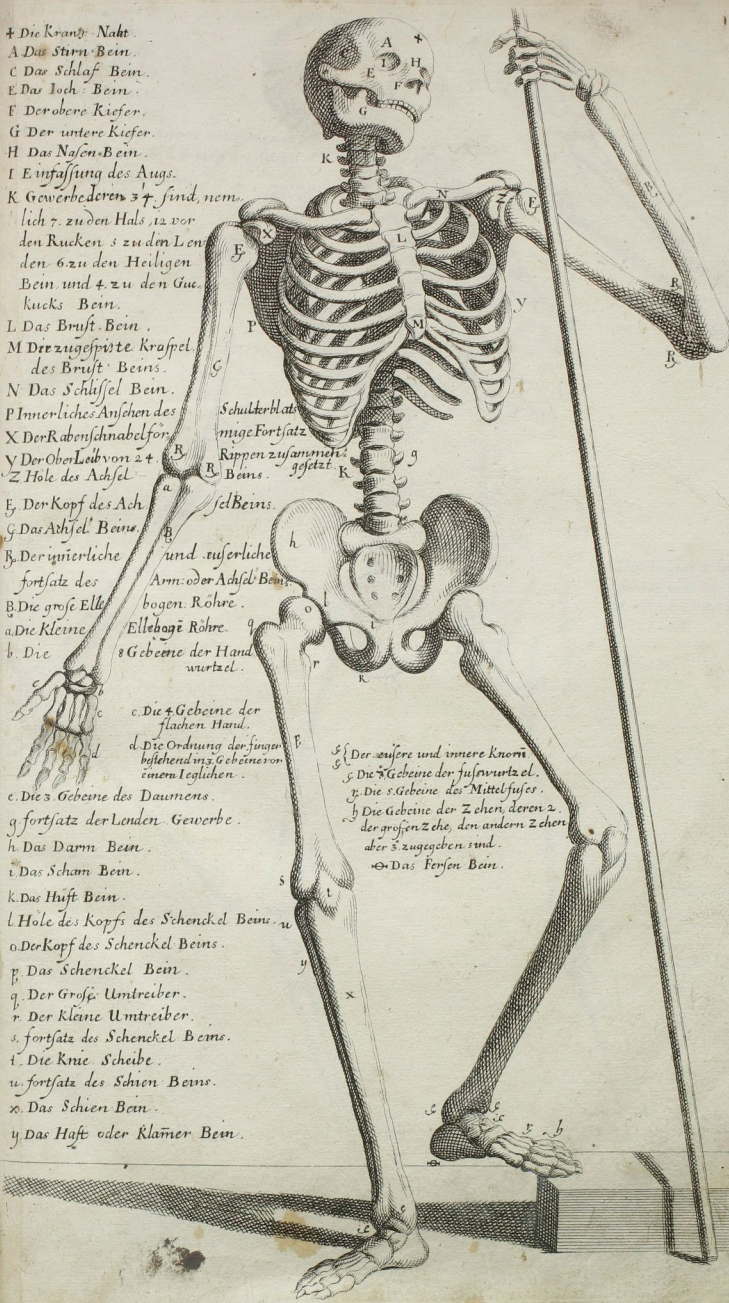 + Die Krantz Naht.
A Das Stirn Bein.
C Das Schlaf Bein.
E Das Ioch: Bein.
F Der obere Kiefer.
G Der untere Kiefer.
H Das Nasen Bein.
I Einfassung des Augs.
K Gewerbe deren 34. sind, nem,
lich 7. zu den Hals, 12 vor
den Rucken 5 zu den Len
den 6. zu den Heiligen
Bein und 4. zu den Guc,
kucks Bein.
L Das Brust-Bein.
M Die zugespiste Kraspel
des Brust Beins.
N Das Schlüssel Bein.
P Innerliches Ansehen des Schulterblats
X Der Rabenschnabelför, mige Fortsatz
Y Der Ober Leib von 24. Rippen zusammen
gesetzt.
Z Höle des Achsel Beins.
E Der Kopf des Ach selBeins.
G Das Achsel Beins.
R Der innerliche und euserliche
fortsatz des Arm: oder Achsel Beins
B. Die grose Elle bogen Röhre.
a. Die Kleine Ellebogē Röhre.
b. Die 8 Gebeene der Hand
wurtzel.
c. Die 4 Gebeine der
flachen Hand.
d. Die Ordnung der finger
bestehend in 3. Gebeine vor
einem Ieglichen.
e. Die 3 Gebeine des Daumens.
g. fortsatz der Lenden Gewerbe.
h. Das Darm Bein.
i. Das Scham Bein.
k. Das Huft Bein.
l Hole des Kopfs des Schenckel Beins.
o. Der Kopf des Schenckel Beins.
p. Das Schenckel Bein.
q. Der Grose Umtreiber.
r. Der Kleine Umtreiber.
s. fortsatz des Schenckel Beins.
t. Die Knie Scheibe.
u. fortsatz des Schien Beins.
x. Das Schien Bein.
y. Das Haft oder Klam̄er Bein.
Der eusere und innere Knorn̄
Die 7 Gebeine der fuswurtzel.
Die 5. Gebeine des Mittelfuses.
h Die Gebeine der Zehen, deren 2.
der grosen Zehe, den andern Zehen
aber 3. zugegeben sind.
Das Fersen Bein.
A
+
C
I
H
E
F
G
K
N
Z
E
X
L
E
B
P
M
y
R
R
G
R
R
K
g
a
B
h
l
o
i
q
r
k
e
b
c
d
p
s
t
u
y
x
h